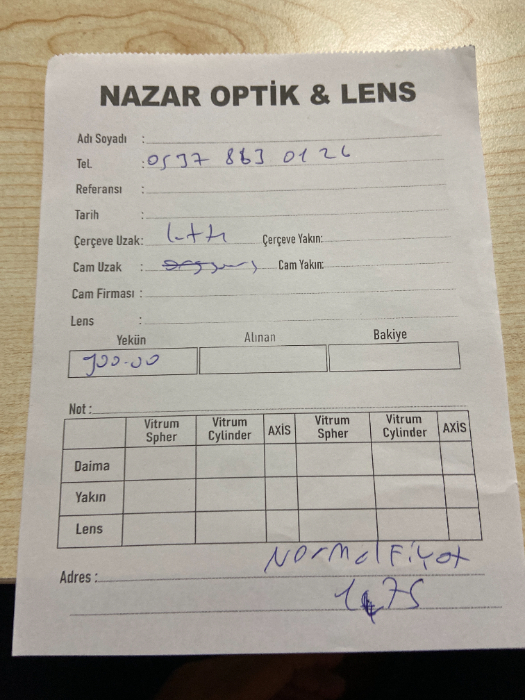 NAZAR OPTİK & LENS
Adı Soyadı :
Tel. : 0537 863 0126
Referansı :
Tarih :
Çerçeve Uzak: Çerçeve Yakın:
Cam Uzak : Cam Yakın:
Cam Firması :
Lens :
Yekün Alınan Bakiye
900.00
Not :
Vitrum Spher Vitrum Cylinder AXİS Vitrum Spher Vitrum Cylinder AXİS
Daima
Yakın
Lens
Normal Fiyat
Adres :
1475